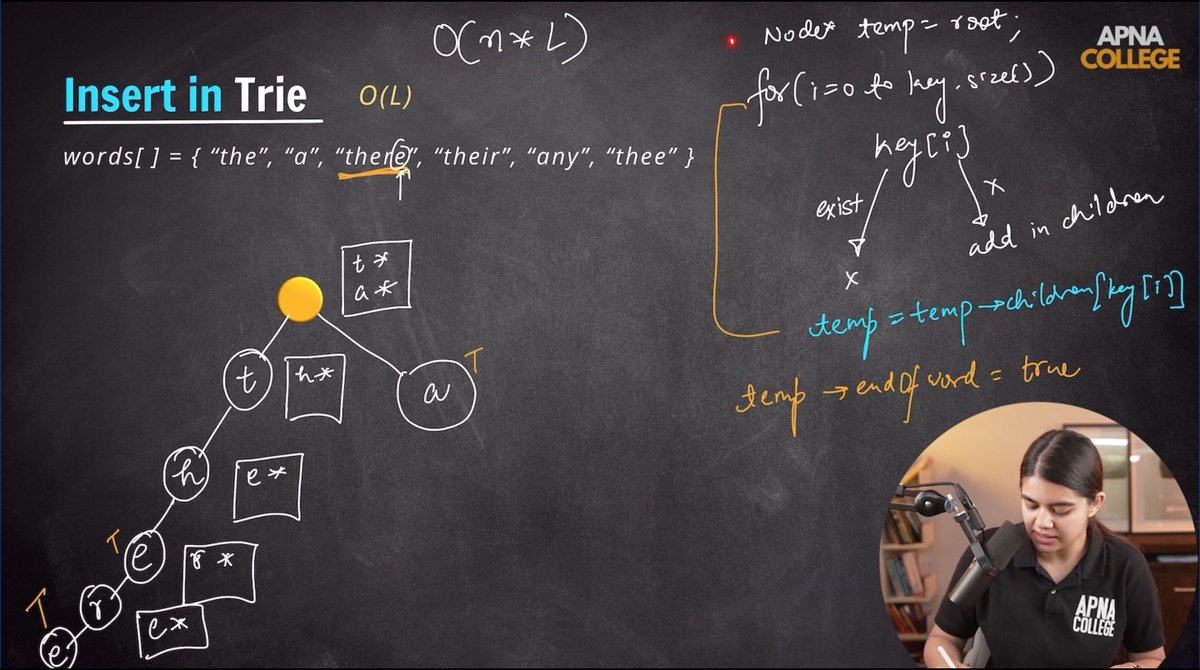 O(n * L)
Node* temp = root;
APNA
COLLEGE
Insert in Trie
O(L)
for(i=0 to key.size())
words[ ] = { “the”, “a”, “there”, “their”, “any”, “thee” }
key[i]
exist
x
x
add in children
temp = temp→children[key[i]]
temp → endOfword = true
t *
a *
t
h *
a
T
h
e *
T
e
r *
T
r
e *
e
APNA
COLLEGE